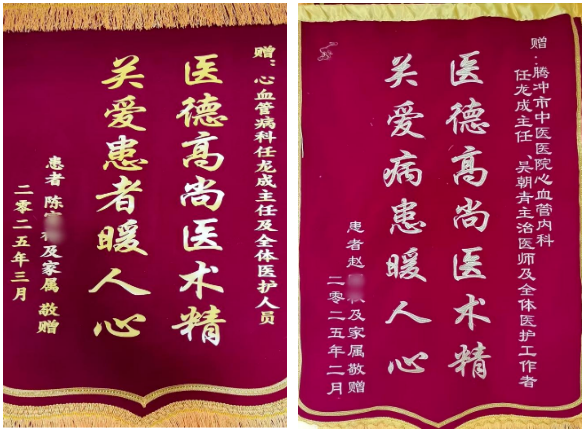 赠：心血管病科任龙成主任及全体医护人员
医德高尚医术精
关爱患者暖人心
患者 陈
及家属 敬赠
二零二五年三月
赠：腾冲市中医医院心血管内科
任龙成主任、吴朝青主治医师及全体医护工作者
医德高尚医术精
关爱病患暖人心
患者赵
及家属敬赠
二零二五年二月